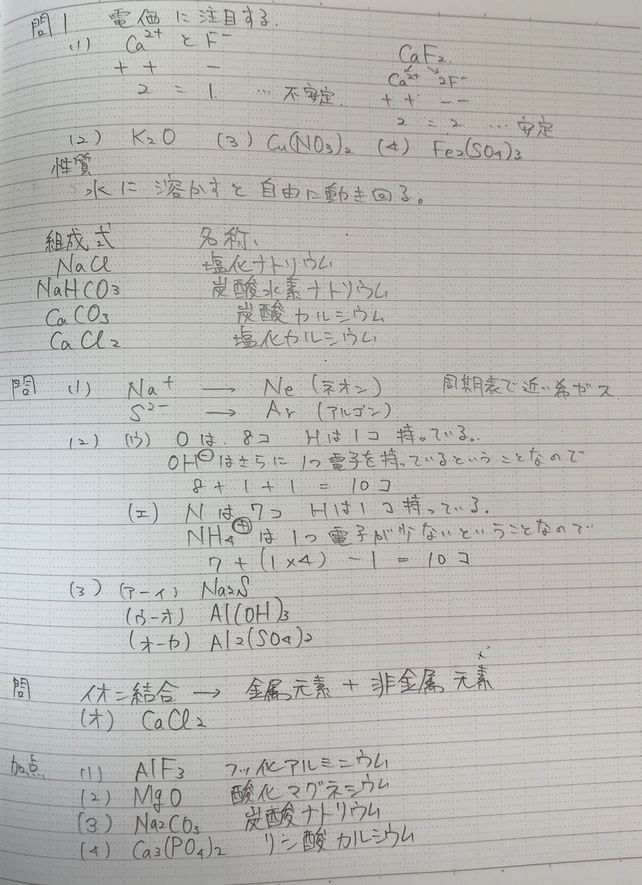 問1 電価に注目する.
(1) Ca²⁺ と F⁻
+ + -
2 = 1 … 不安定.
CaF₂.
Ca²⁺ 2F⁻
+ + - -
2 = 2 … 安定
(2) K₂O (3) Cu(NO₃)₂ (4) Fe₂(SO₄)₃
性質
水に溶かすと自由に動き回る。
組成式 名称、
NaCl 塩化ナトリウム
NaHCO₃ 炭酸水素ナトリウム
CaCO₃ 炭酸カルシウム
CaCl₂ 塩化カルシウム
問 (1) Na⁺ → Ne (ネオン) 周期表で近い希ガス
S²⁻ → Ar (アルゴン)
(2) (ウ) Oは、8コ Hは1コ持っている。
OH⊖はさらに1つ電子を持っているということなので
8 + 1 + 1 = 10コ
(エ) Nは7コ Hは1コ持っている.
NH₄⊕は1つ電子が少ないということなので
7 + (1×4) - 1 = 10コ
(3) (ア-イ) Na₂S
(ウ-オ) Al(OH)₃
(オ-カ) Al₂(SO₄)₃
問 イオン結合 → 金属元素 + 非金属元素
(オ) CaCl₂
加点 (1) AlF₃ フッ化アルミニウム
(2) MgO 酸化マグネシウム
(3) Na₂CO₃ 炭酸ナトリウム
(4) Ca₃(PO₄)₂ リン酸カルシウム